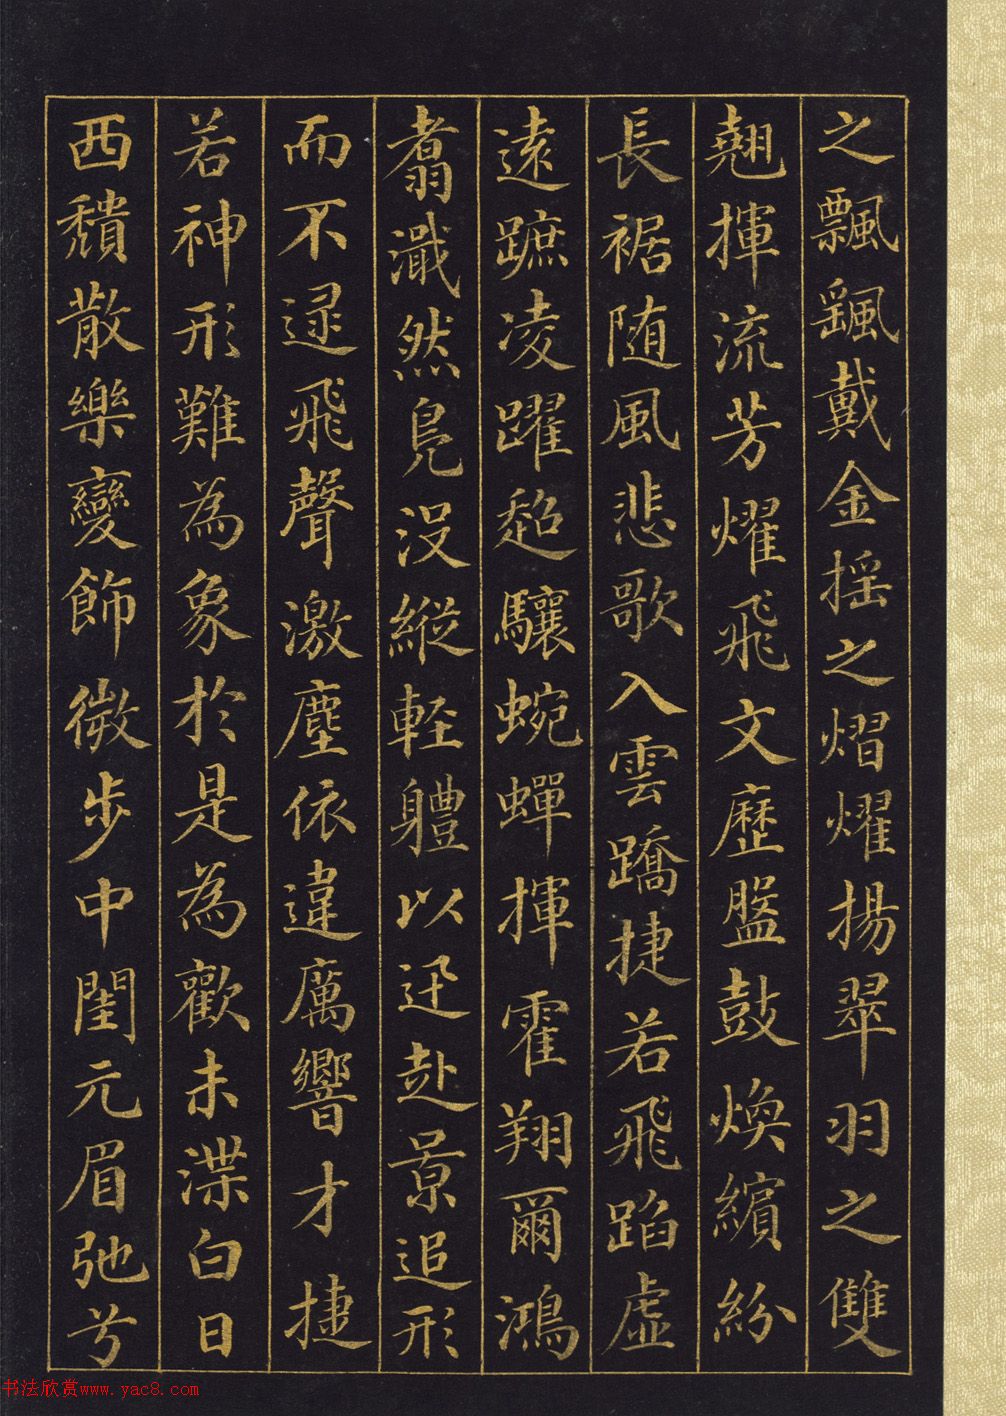 之飄颻戴金揺之熠燿揚翠羽之雙
翹揮流芳燿飛文歷盤鼓煥繽紛
長裾随風悲歌入雲蹻捷若飛蹈虛
遠蹠凌躍超驤蜿蟬揮霍翔爾鴻
翥濈然鳧没縱軽軆以迅赴景追形
而不逮飛聲激塵依違厲響才捷
若神形難為象於是為歡未渫白日
西頹散樂變飾微步中閨元眉弛兮
书法欣赏www.yac8.com